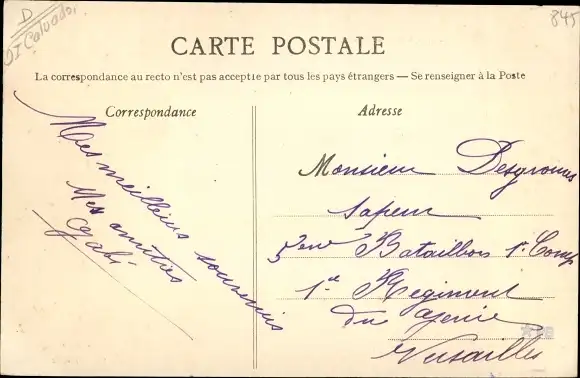 D
DI Calvados
845
CARTE POSTALE
La correspondance au recto n'est pas acceptie par tous les pays étrangers — Se renseigner à la Poste
Correspondance
Mes meilleurs souvenirs
Mes amitiés
Gabi
Adresse
Monsieur
Sapeur
5eme Bataillon 1e Comp
1er Regiment
du Genie
Versailles